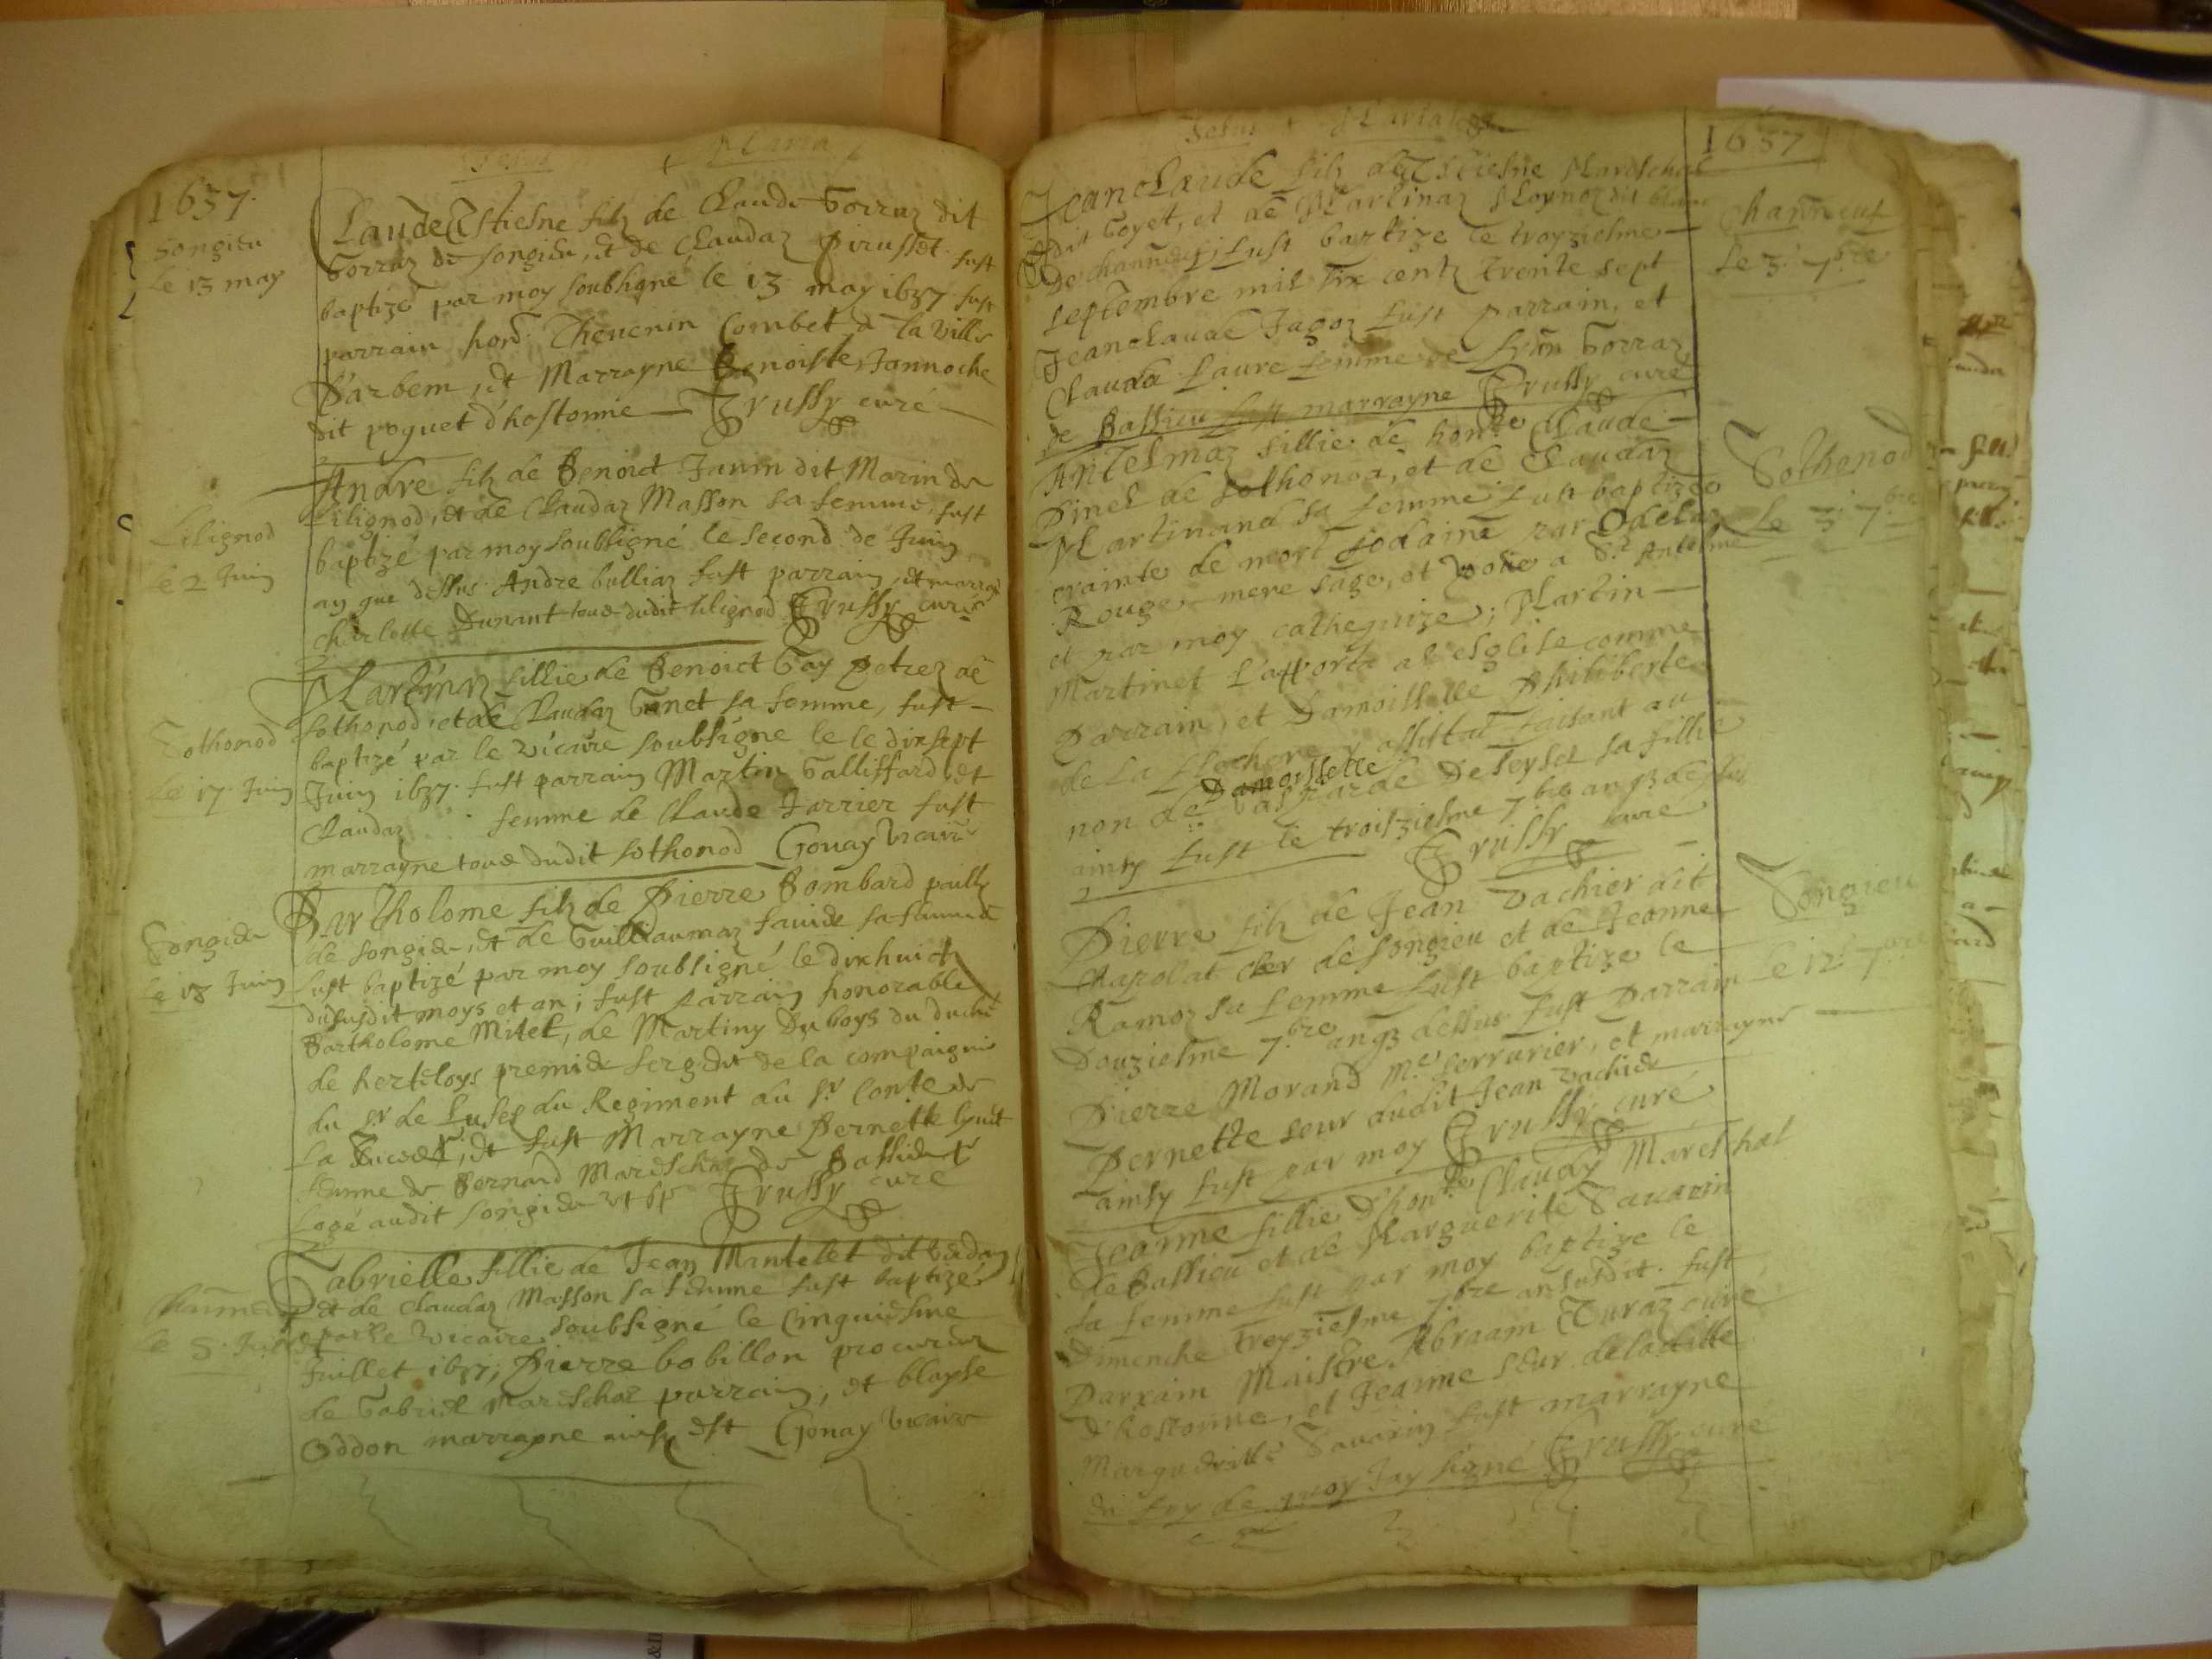 Jesus Maria
1637.
Songieu
le 13 may
Claude Estiesne filz de Claude Gorraz dit
Gorraz de Songieu, et de Claudaz Pirusset fust
baptizé par moy soubsigné le 13 may 1637 fust
parrain hon. Thevenin Combet de la ville
D'arbem, et Marrayne Benoiste Jannoche
dit poguet d'hostonne Trussy curé
Lilignod
le 2 Juin
Andre filz de Benoict Janin dit Marin de
Lilignod, et de Claudaz Masson sa femme, fust
baptizé par moy soubsigné le second de Juin
an que dessus Andre bulliaz fust parrain, et marrayne
Charlotte Dunant tous dudit lilignod Trussy curé
Sothonod
le 17 Juin
Martinaz fillie de Benoict Gay Petrez de
Sothonod, et de Claudaz Genet sa femme, fust
baptizé par le vicaire soubsigné le le dixsept
Juin 1637. fust parrain Martin Galliffard, et
Claudaz femme de Claude Jarrier fust
marrayne tous dudit Sothonod Gonay vicaire
Songieu
le 18 Juin
Bartholome filz de Pierre Bombard
de Songieu, et de Guillaumaz sa femme
fust baptizé par moy soubsigné le dixhuict
dususdit moys et an; fust parrain honorable
Bartholome Mitet, de Martiny Duboys du duché
de premier sergent de la compaignie
du Sr de du Regiment du Sr Conte de
La et fust Marrayne Pernette
femme de Bernard Mareschaz de Bassieu
Logé audit Songieu Trussy curé
le 5 Juillet
Gabrielle fillie de Jean Mantelet dit
et de Claudaz Masson sa femme fust baptizé
par le vicaire soubsigné le cinquiesme
Juillet 1637; Pierre bobillon procureur
de Gabriel Mareschaz parrain, et blayse
Oddon marrayne ainsy est Gonay vicaire
Jesus
1637
Channeuf
le 3. 7bre
Jeanclaude filz de Estiesne Mareschal
dit Goyet, et de Martinaz Moynoz dit blanc
De channeuf, fust baptize le troyziesme
septembre mil six centz trente sept
Jeanclaude Jagoz fust parrain, et
Clauda Laure femme de fran Gorraz
de Bassieu fust marrayne Trussy curé
Sothonod
le 3 7bre
Antelmaz fillie de honble Claude
Pinet de Sothonod, et de Claudaz
Martinand sa femme fust baptizée
crainte de mort sodaine par Odelaz
Rouge mere sage, et vouée a St Antelme
et par moy cathequize; Martin
Martinet l'apporta al'esglise comme
Parrain, et Damoiselle Philiberte
de La assistat faisant au
non de Damoiselle Gasparde De Seyssel sa fillie
ainsy fust le troiziesme 7bre an que dessus
Trussy curé
Songieu
le 12. 7bre
Pierre filz de Jean Vachier dit
Chapolat de Songieu et de Jeanne
Ramoz sa femme fust baptize le
Douziesme 7bre an que dessus fust Parrain
Pierre Morand Me serrurier, et marrayne
Pernette seur audit Jean Vachier
ainsy fust par moy Trussy curé
Jeanne fillie d'honble Claudy Mareschal
de Bassieu et de Marguerite Savarin
sa femme fust par moy baptize le
Dimenche treyziesme 7bre an susdit. fust
Parrain Maistre Abraam Curaz curé
d'hostonne, et Jeanne seur de laditte
Marguerite Savarin fust marrayne
En foy de quoy Jay signé Trussy curé